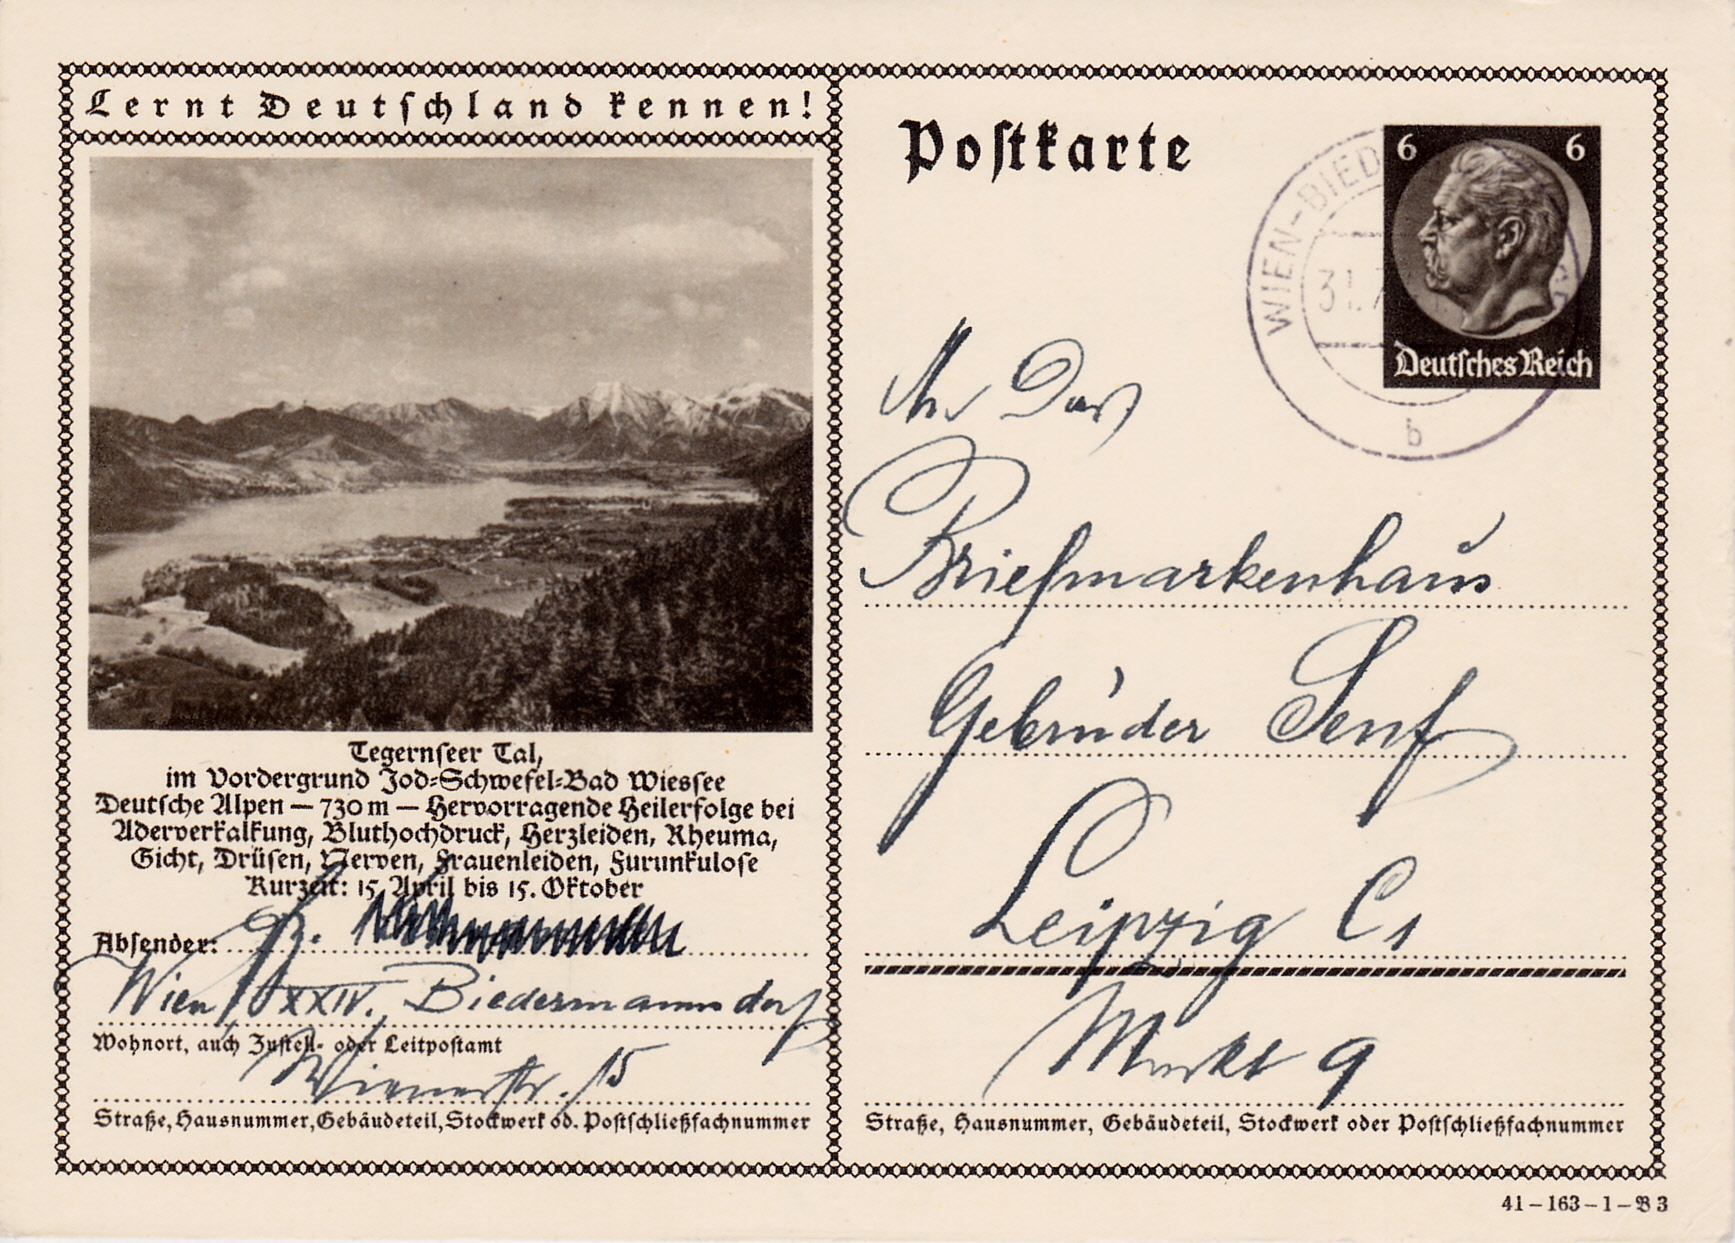 Lernt Deutschland kennen!
Tegernseer Tal,
im Vordergrund Jod-Schwefel-Bad Wiessee
Deutsche Alpen — 730 m — Hervorragende Heilerfolge bei
Aderverkalkung, Bluthochdruck, Herzleiden, Rheuma,
Gicht, Drüsen, Nerven, Frauenleiden, Furunkulose
Kurzeit: 15. April bis 15. Oktober
Absender:
Wien XXIV. Biedermannsdorf
Wohnort, auch Zustell- oder Leitpostamt
Wienerstr. 15
Straße, Hausnummer, Gebäudeteil, Stockwerk od. Postschließfachnummer
Postkarte
6 6
Deutsches Reich
WIEN-BIED
31.7
b
An Das
Briefmarkenhaus
Gebrüder Senf
Leipzig C1
Markt 9
Straße, Hausnummer, Gebäudeteil, Stockwerk oder Postschließfachnummer
41–163–1–B 3